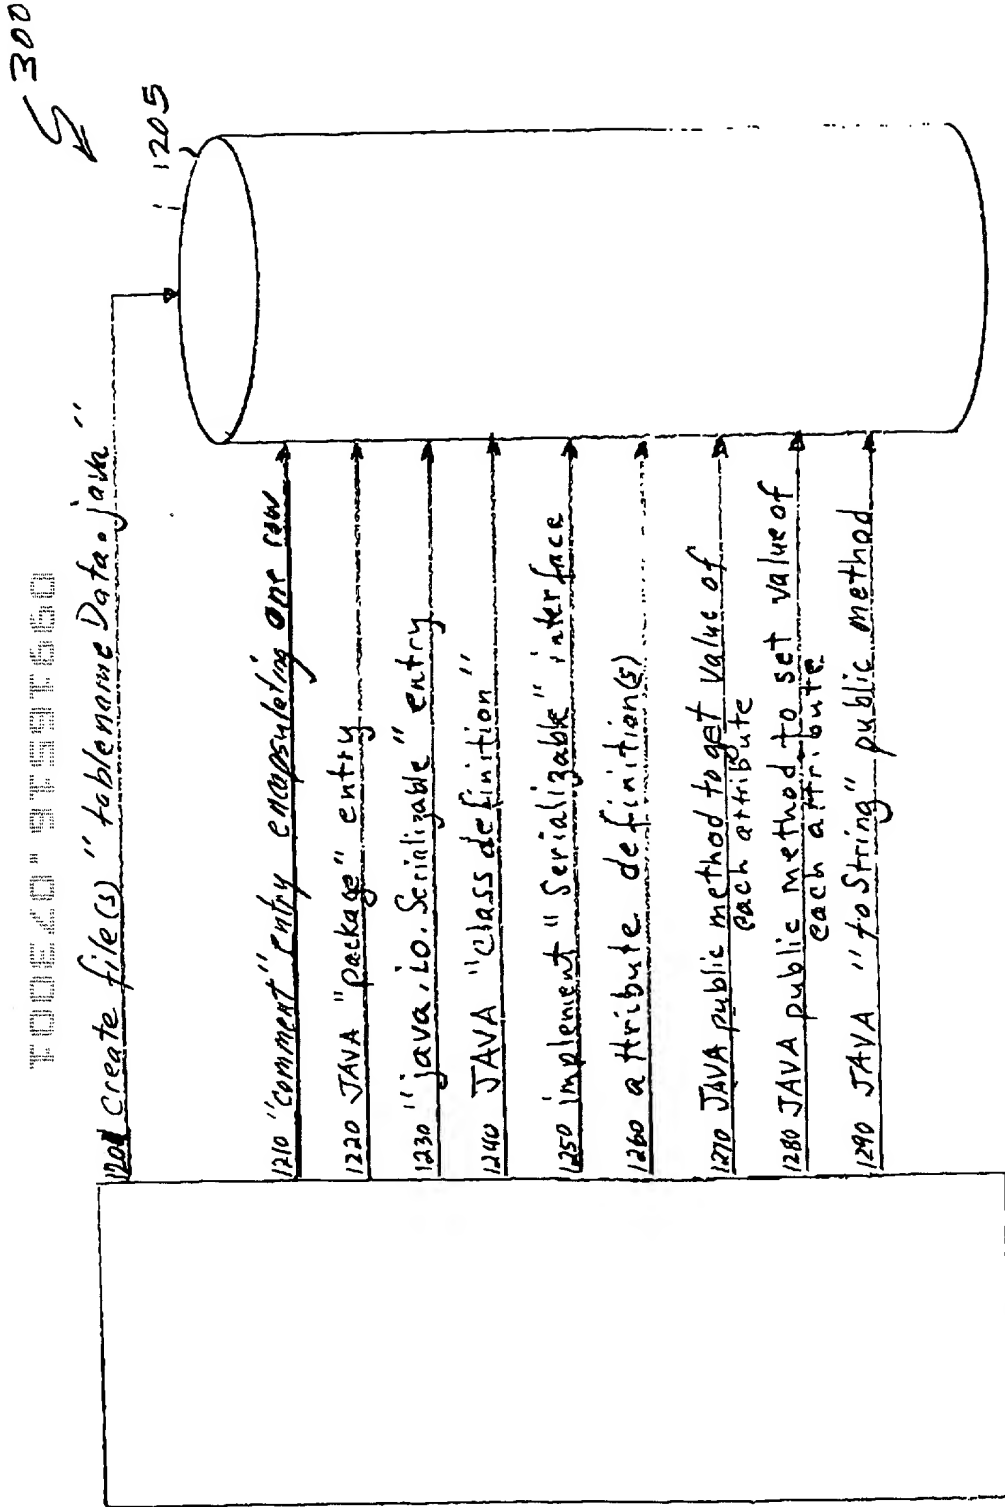 300
1205
1201 Create file(s) "tablenameData.java"
1210 "comment" entry encapsulating one row
1220 JAVA "package" entry
1230 "java.io.Serializable" entry
1240 JAVA "class definition"
1250 implement "Serializable" interface
1260 attribute definition(s)
1270 JAVA public method to get value of
each attribute
1280 JAVA public method to set value of
each attribute
1290 JAVA "toString" public method